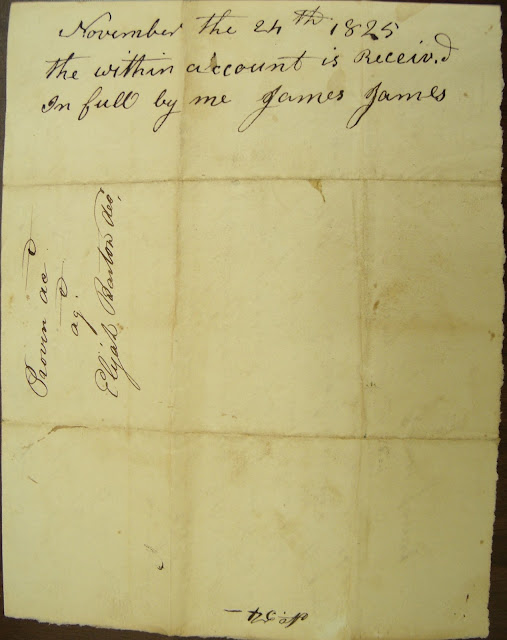 November the 24th 1825
the within account is Receiv.d
In full by me James James
Proven ac
ag.
Elijah Barton
No. 54 -